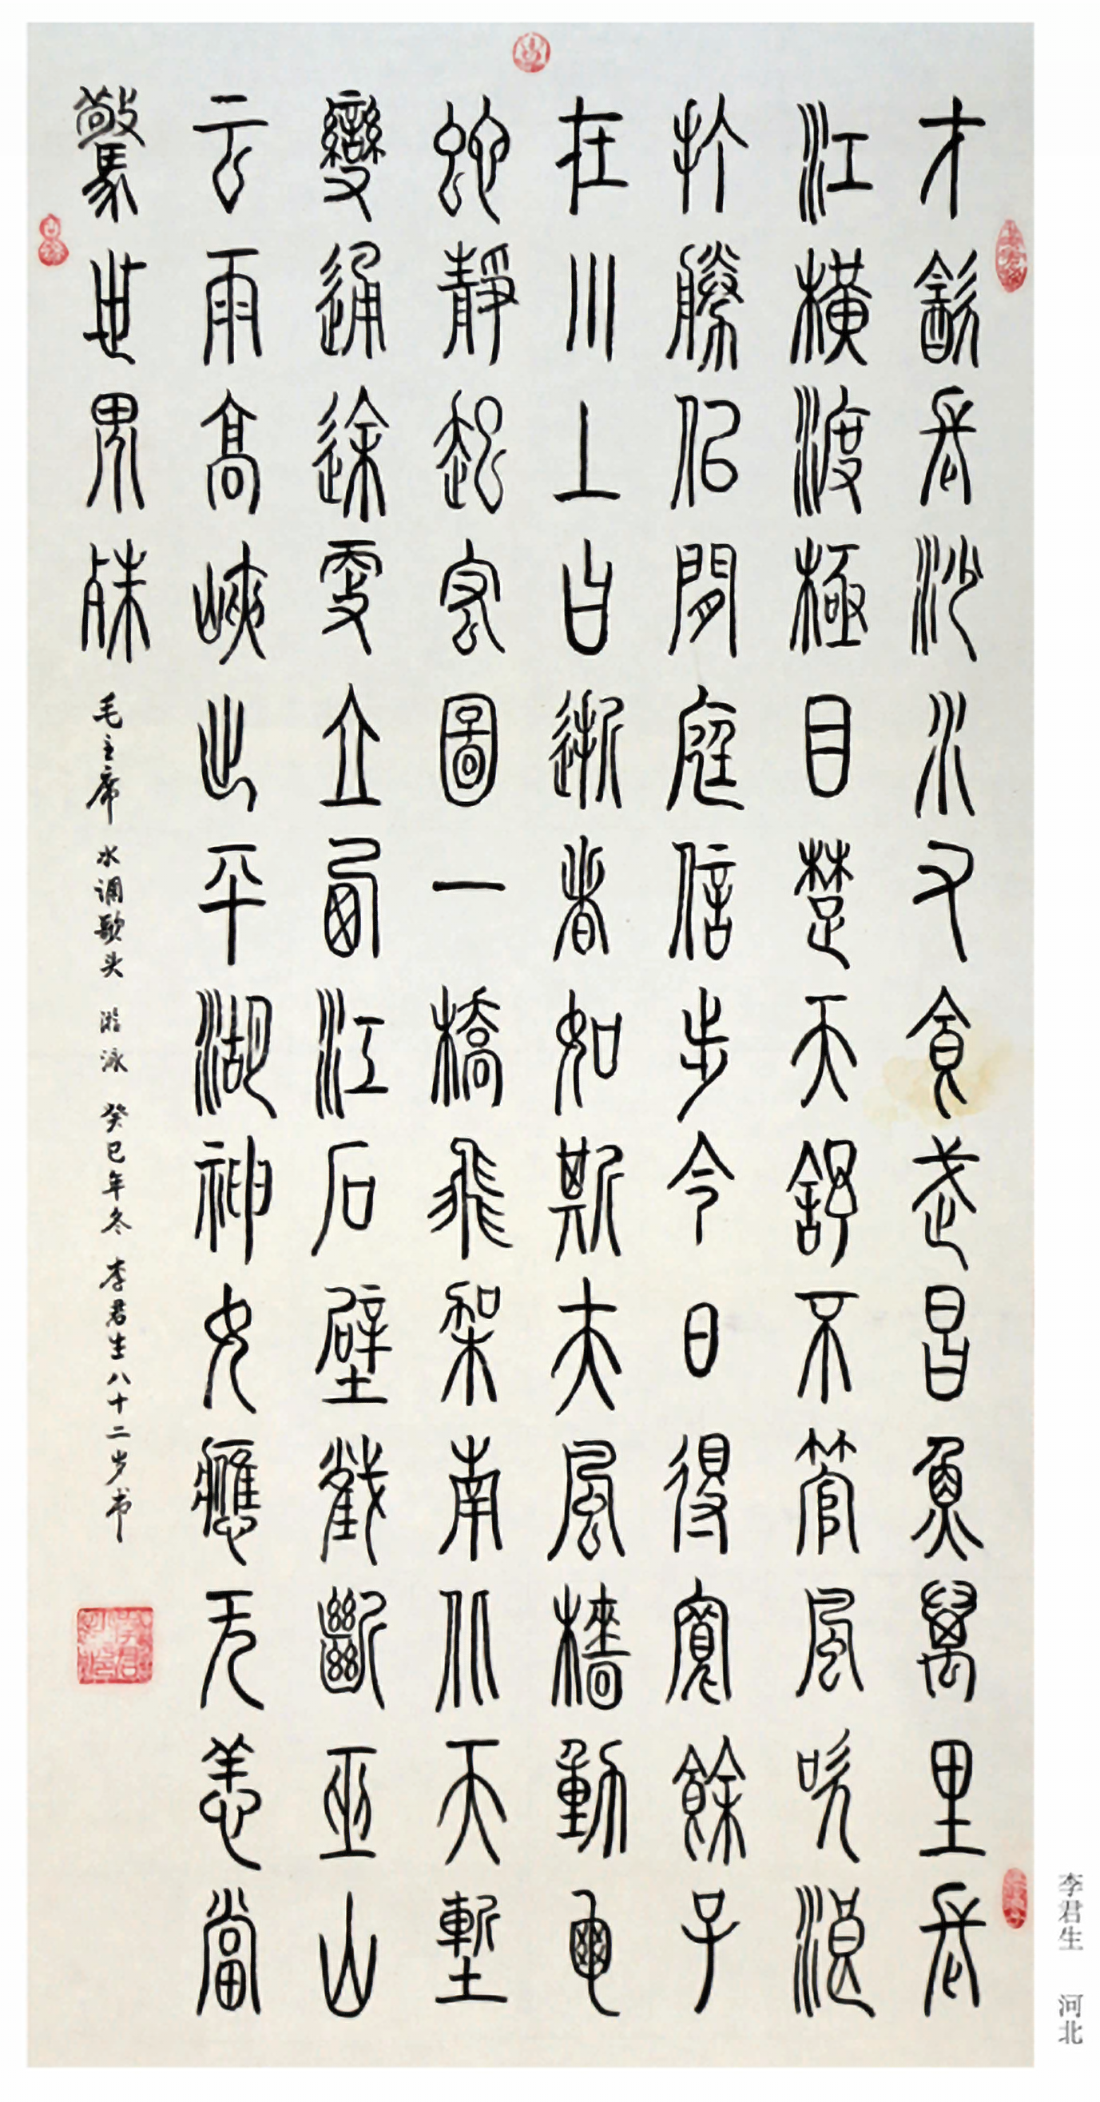 才飲長沙水又食武昌魚萬里長
江橫渡極目楚天舒不管風吹浪
打勝似閒庭信步今日得寬餘子
在川上曰逝者如斯夫風檣動龜
蛇靜起宏圖一橋飛架南北天塹
變通途更立西江石壁截斷巫山
云雨高峽出平湖神女應无恙當
驚世界殊
毛主席 水调歌头 游泳 癸巳年冬 李君生八十二岁书
李君生 河北